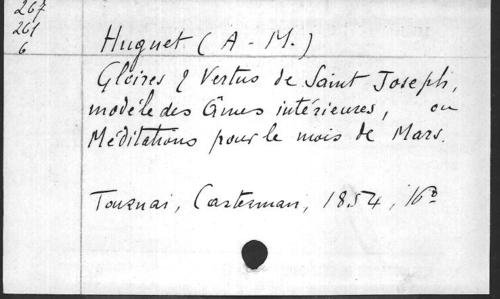 267
261
6
Huguet (A - M.)
Gloires & Vertus de Saint Joseph,
modèle des âmes intérieures, ou
Méditations pour le mois de Mars.
Tournai, Casterman, 1854, 16º